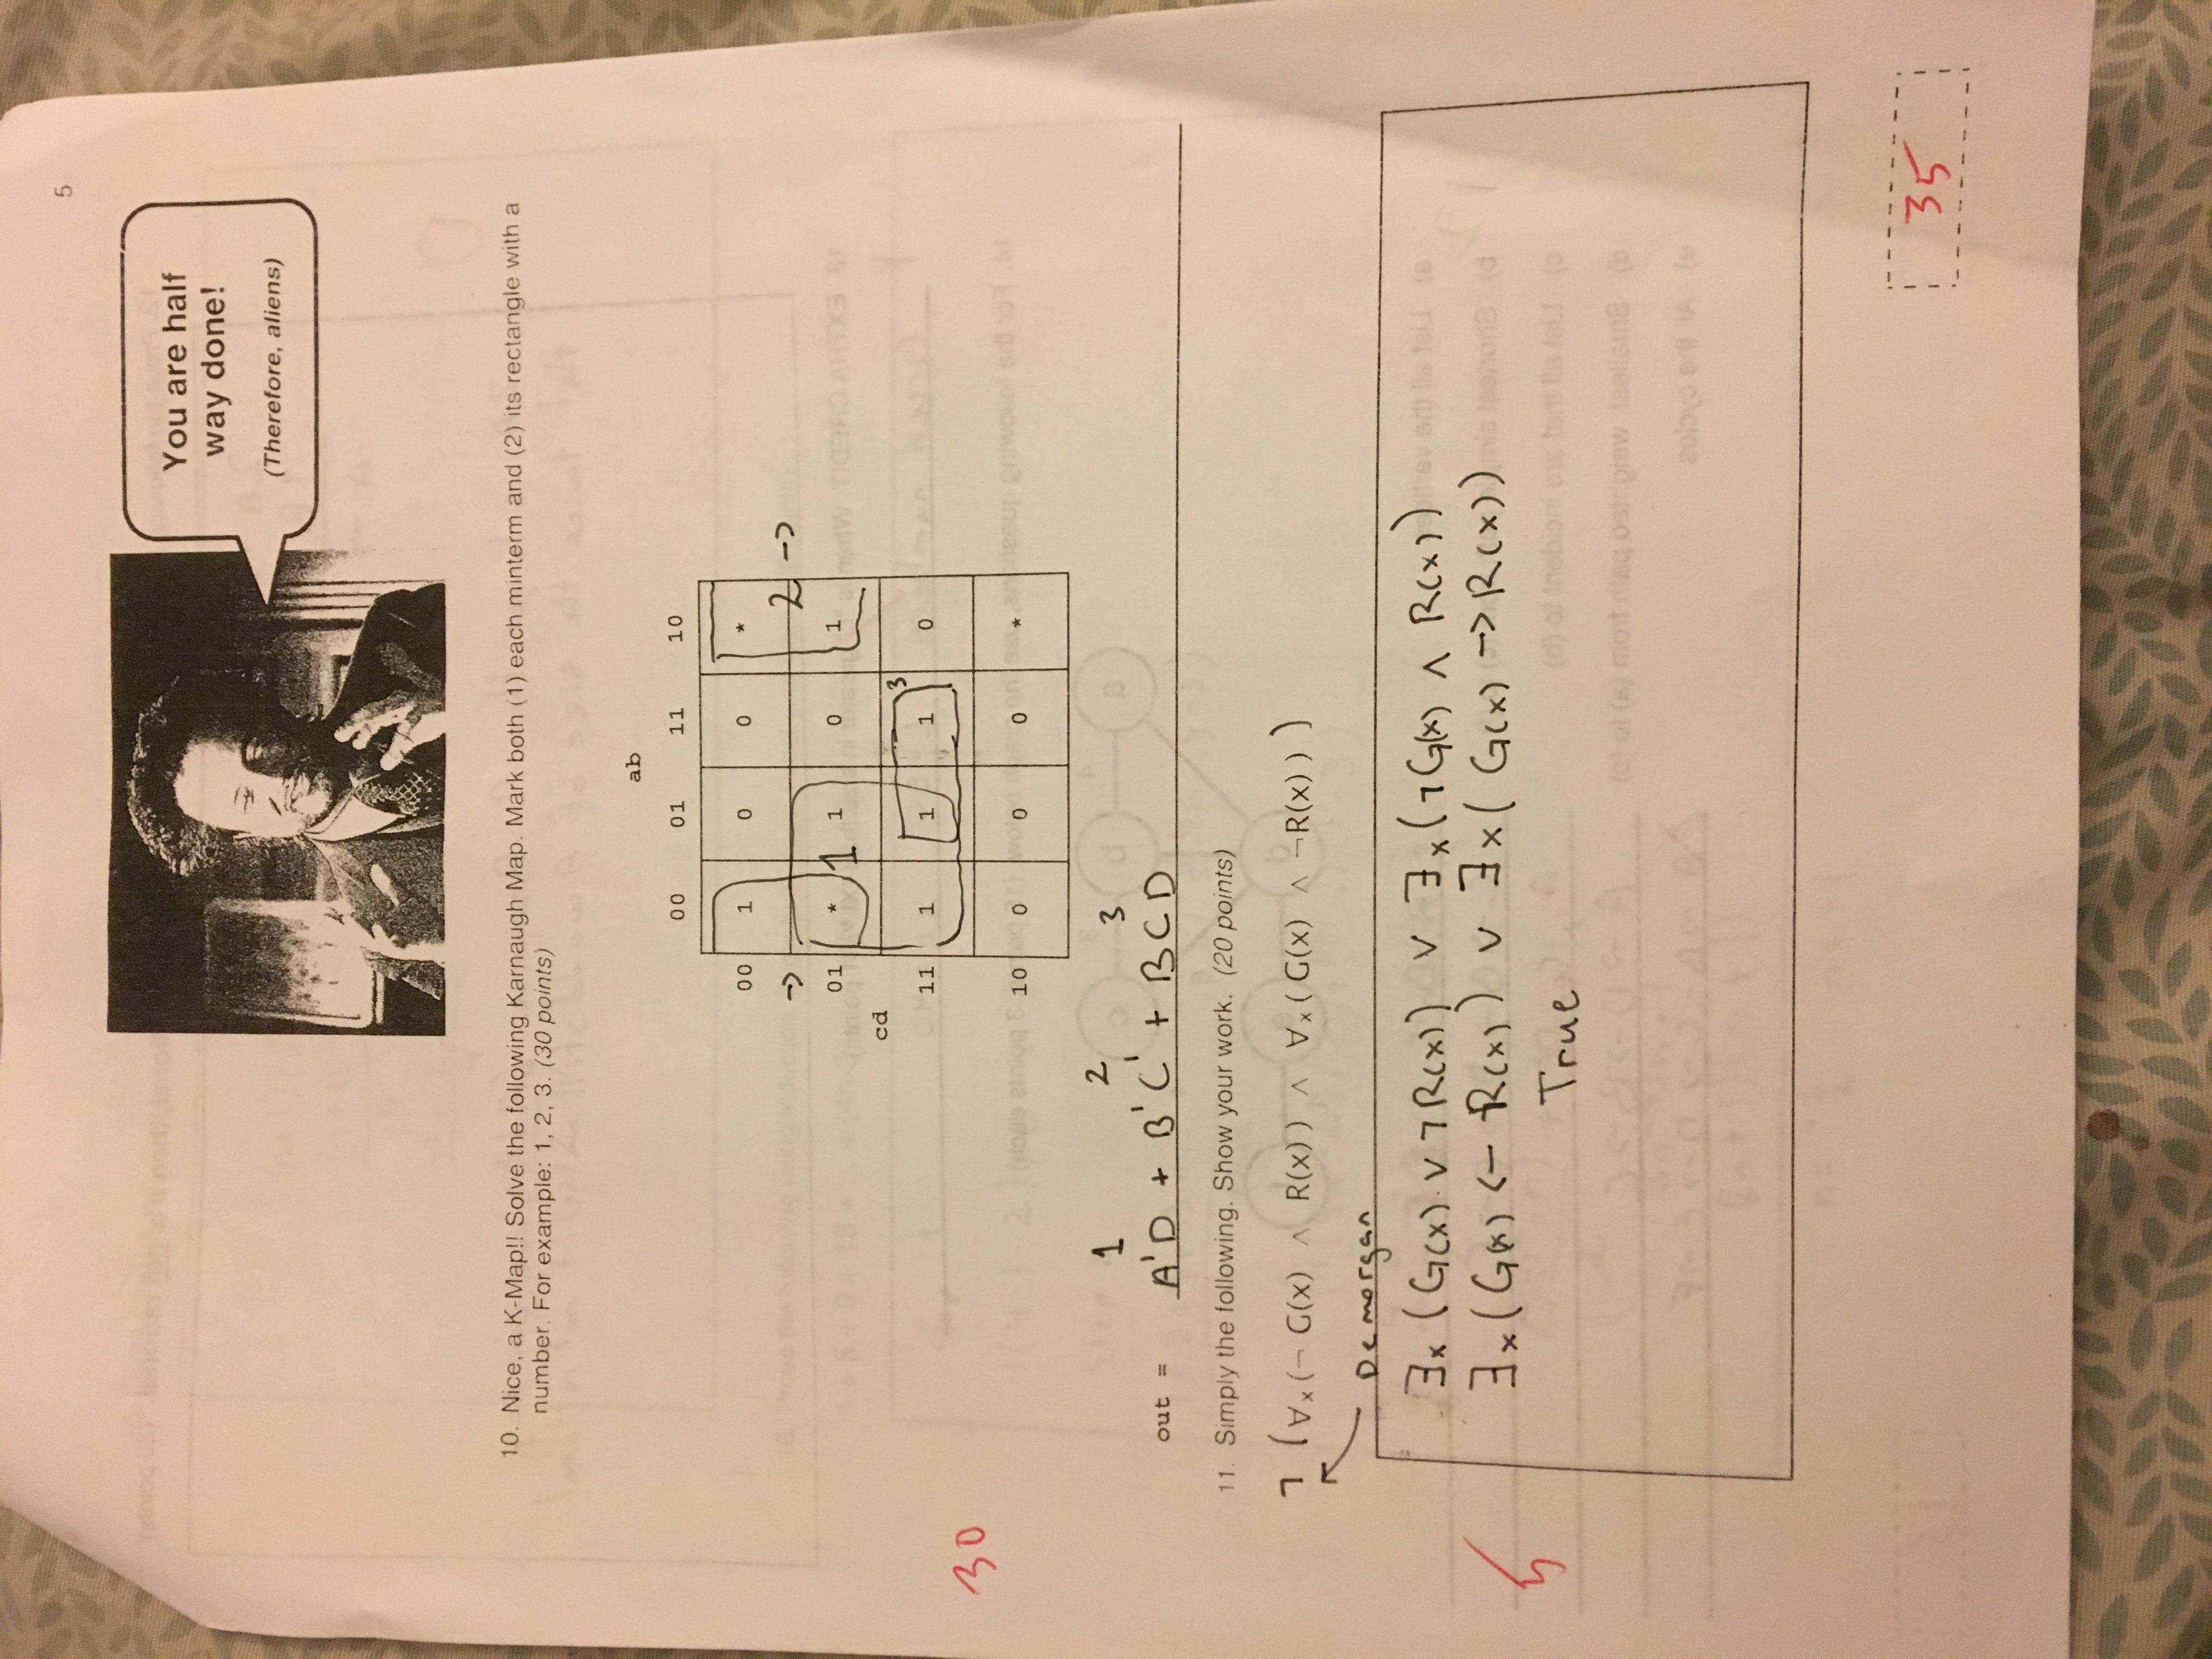 5
You are half
way done!
(Therefore, aliens)
10. Nice, a K-Map!! Solve the following Karnaugh Map. Mark both (1) each minterm and (2) its rectangle with a
number. For example: 1, 2, 3. (30 points)
ab
00 01 11 10
00 1 0 0 *
-> 2 ->
01 * 1 1 0 1
cd
3
11 1 1 1 0
30
10 0 0 0 *
1 2 3
out = A'D + B'C' + BCD
11. Simply the following. Show your work. (20 points)
¬ (∀x(¬ G(x) ∧ R(x)) ∧ ∀x(G(x) ∧ ¬R(x)))
Demorgan
∃x(G(x) ∨ ¬R(x)) ∨ ∃x(¬G(x) ∧ R(x))
∃x(G(x) <- R(x)) ∨ ∃x(G(x) -> R(x))
5
True
35